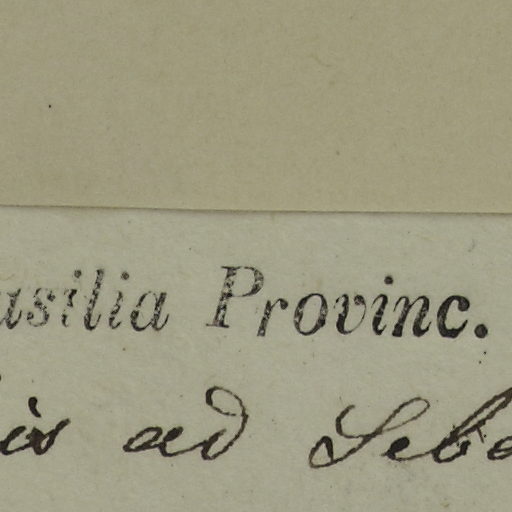 asilia Provinc.
is ad Seba